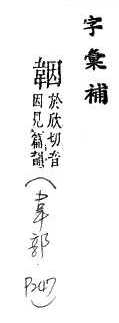 字彙補
於欣切音
因見篇韻
(韋部.
P247)